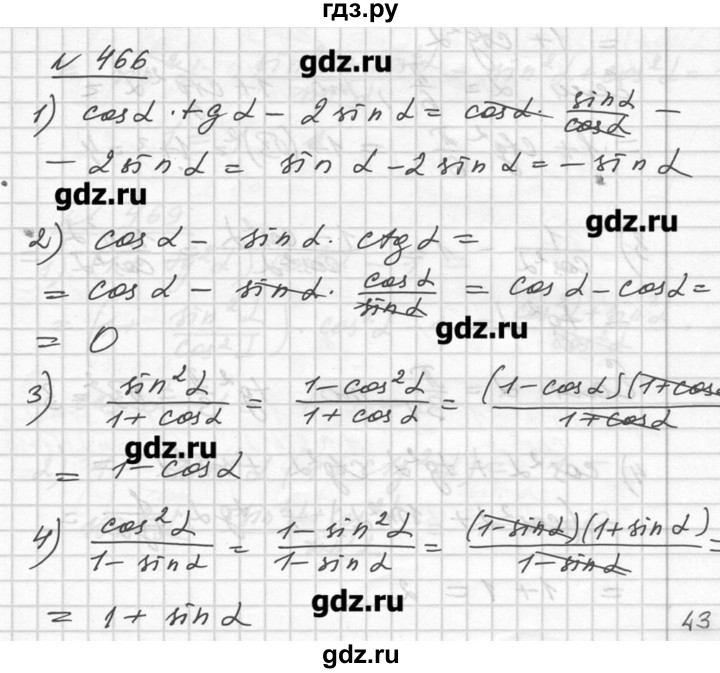 гдз.ру
№ 466
gdz.ru
1) cos α · tg α − 2 sin α = cos α · sin α / cos α −
− 2 sin α = sin α − 2 sin α = − sin α
gdz.ru
gdz.ru
2) cos α − sin α · ctg α =
= cos α − sin α · cos α / sin α = cos α − cos α =
gdz.ru
= 0
3) sin² α / 1 + cos α = 1 − cos² α / 1 + cos α = (1 − cos α)(1 + cos α / 1 + cos α
gdz.ru
= 1 − cos α
4) cos² α / 1 − sin α = 1 − sin² α / 1 − sin α = (1 − sin α)(1 + sin α) / 1 − sin α =
gdz.ru
= 1 + sin α
43
gdz.ru